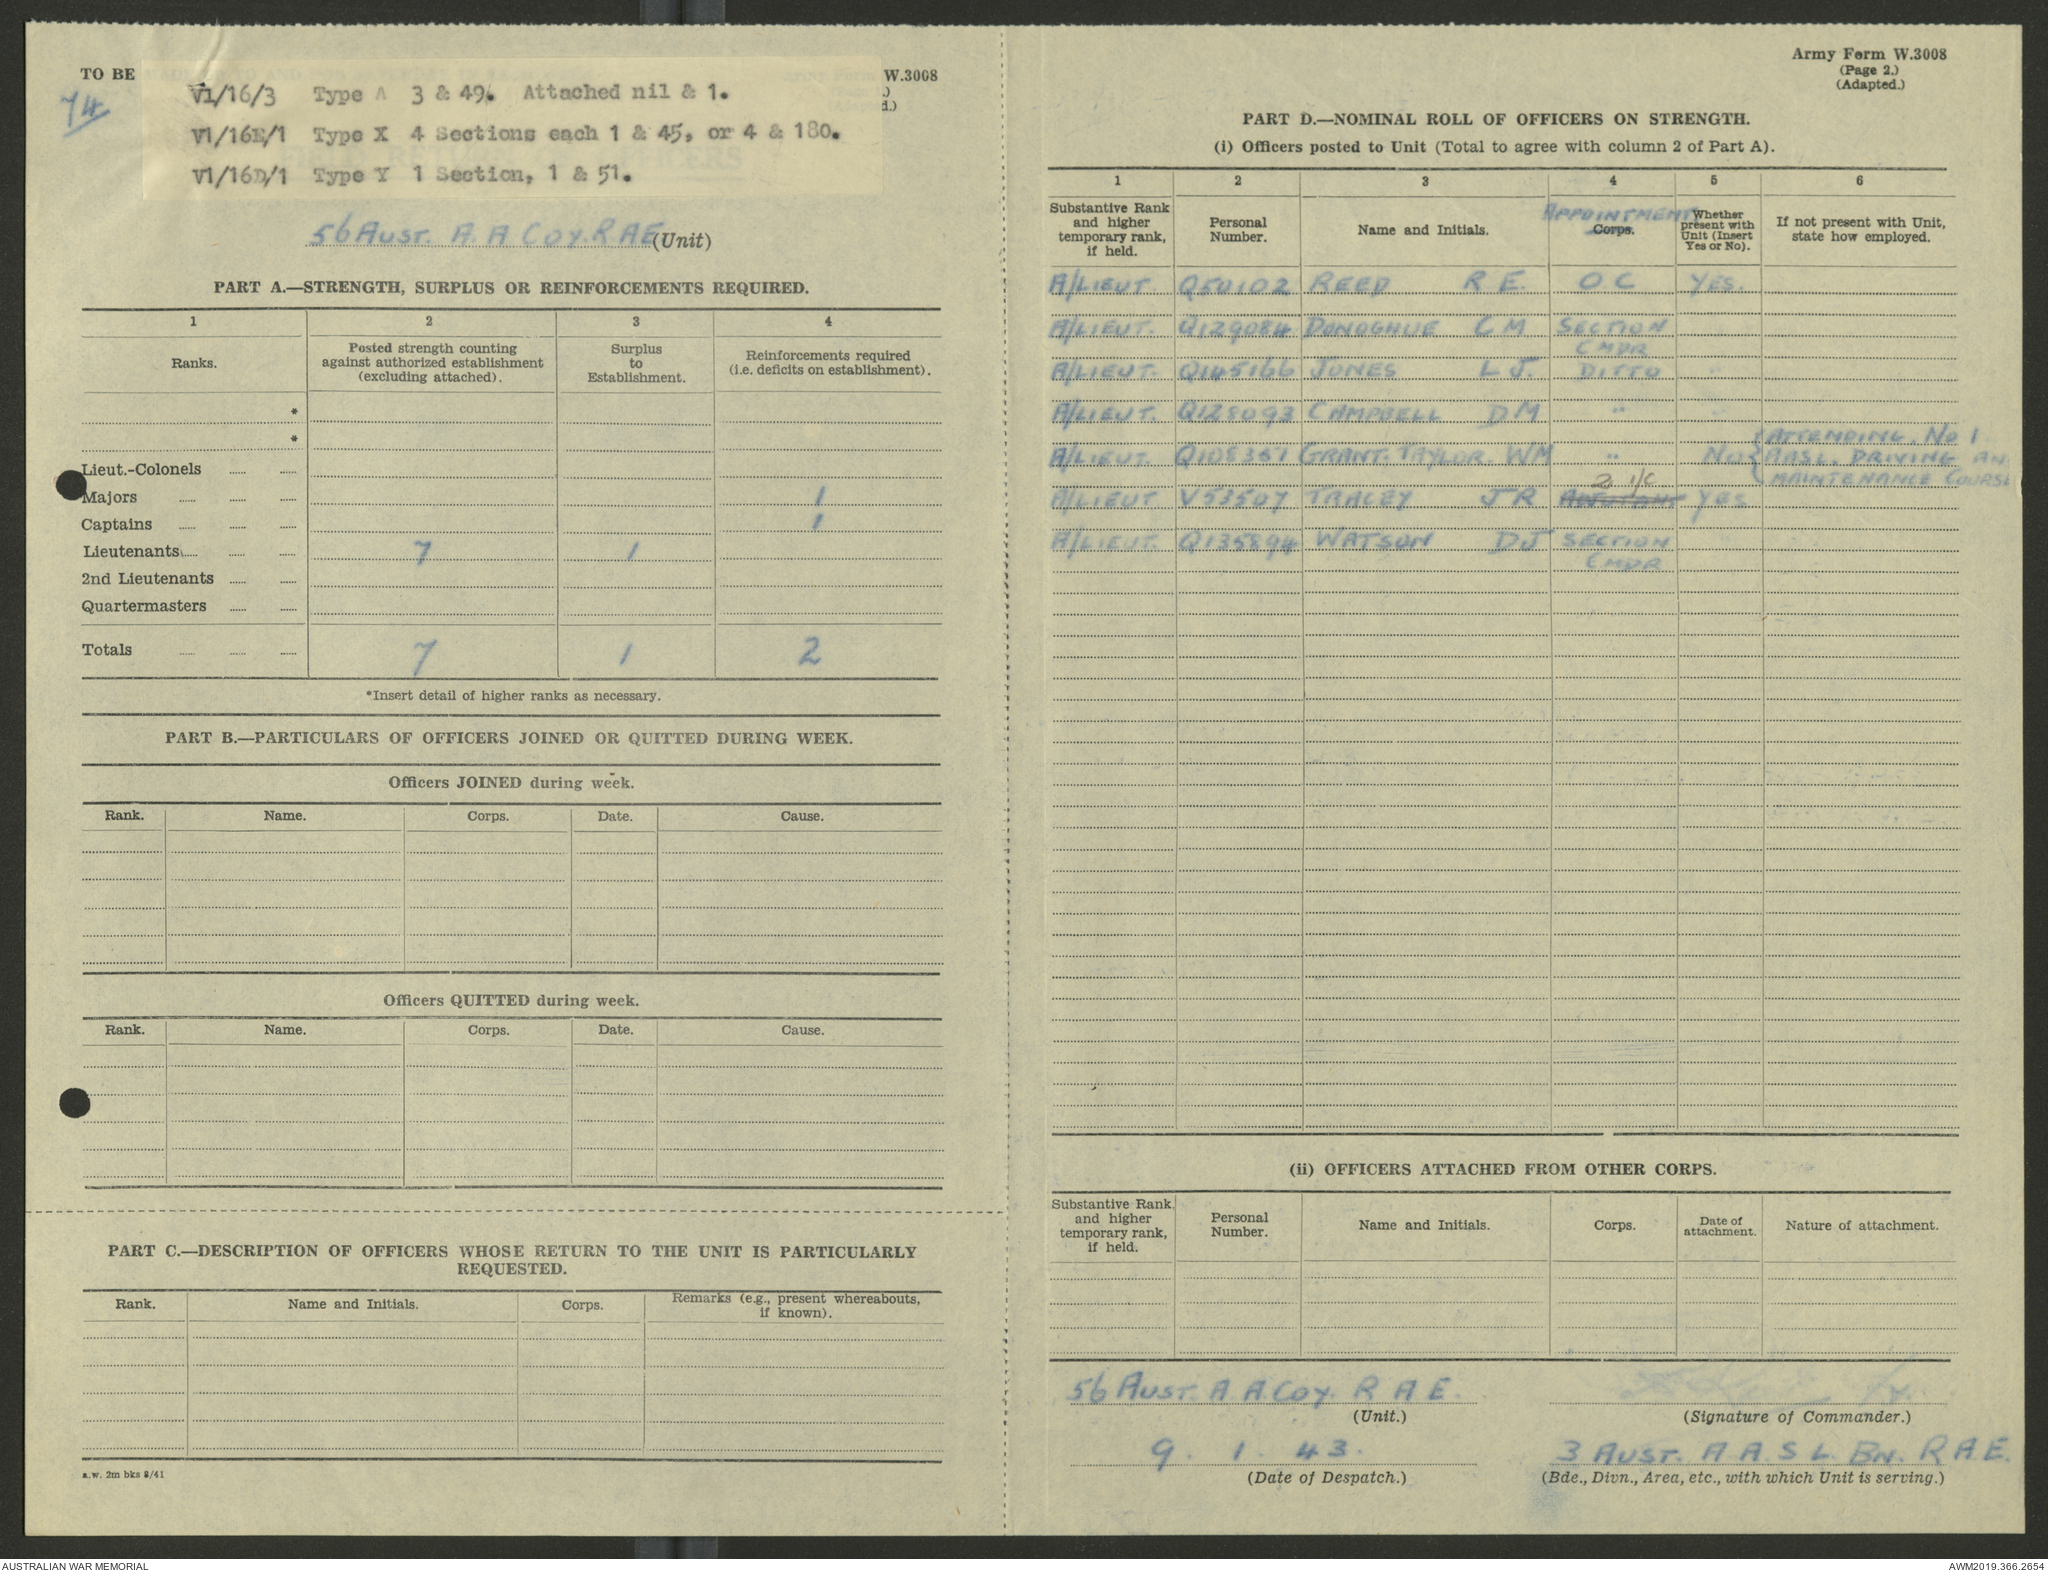 TO BE
W.3008
74
V1/16/3 Type A 3 & 49. Attached nil & 1.
V1/16E/1 Type X 4 Sections each 1 & 45, or 4 & 180.
V1/16D/1 Type Y 1 Section, 1 & 51.
56 AUST. A. A COY. R A E (Unit)
PART A.—STRENGTH, SURPLUS OR REINFORCEMENTS REQUIRED.
1 2 3 4
Ranks. Posted strength counting against authorized establishment (excluding attached). Surplus to Establishment. Reinforcements required (i.e. deficits on establishment).
*
*
Lieut.-Colonels
Majors 1
Captains 1
Lieutenants 7 1
2nd Lieutenants
Quartermasters
Totals 7 1 2
*Insert detail of higher ranks as necessary.
PART B.—PARTICULARS OF OFFICERS JOINED OR QUITTED DURING WEEK.
Officers JOINED during week.
Rank. Name. Corps. Date. Cause.
Officers QUITTED during week.
Rank. Name. Corps. Date. Cause.
PART C.—DESCRIPTION OF OFFICERS WHOSE RETURN TO THE UNIT IS PARTICULARLY
REQUESTED.
Rank. Name and Initials. Corps. Remarks (e.g., present whereabouts, if known).
a.w. 2m bks 8/41
Army Form W.3008
(Page 2.)
(Adapted.)
PART D.—NOMINAL ROLL OF OFFICERS ON STRENGTH.
(i) Officers posted to Unit (Total to agree with column 2 of Part A).
1 2 3 4 5 6
Substantive Rank and higher temporary rank, if held. Personal Number. Name and Initials. APPOINTMENT Corps. Whether present with Unit (Insert Yes or No). If not present with Unit, state how employed.
A/LIEUT. Q50102 REED R E. O C YES.
A/LIEUT. Q129084 DONOGHUE C M SECTION
CMDR
A/LIEUT. Q145166 JONES L J. DITTO "
A/LIEUT. Q128093 CAMPBELL D M " "
ATTENDING. No 1
A/LIEUT. Q108361 GRANT. TAYLOR. WM " No AASL. DRIVING AN
MAINTENANCE COURSE
2 I/C
A/LIEUT V53507 TRACEY J R ADJUTANT YES
A/LIEUT. Q135894 WATSON D J SECTION
CMDR
(ii) OFFICERS ATTACHED FROM OTHER CORPS.
Substantive Rank and higher temporary rank, if held. Personal Number. Name and Initials. Corps. Date of attachment. Nature of attachment.
56 AUST. A A. COY. R A E.
(Unit.) (Signature of Commander.)
9. 1. 43. 3 AUST. A A. S L. BN. R A.E.
(Date of Despatch.) (Bde., Divn., Area, etc., with which Unit is serving.)
AUSTRALIAN WAR MEMORIAL
AWM2019.366.2654